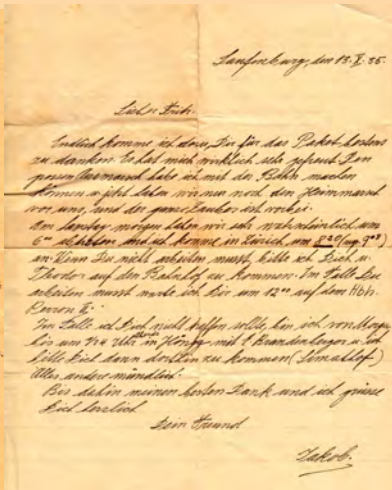 Laufenburg, den 13. X. 35.
Lieber Fritz.
Endlich komme ich dazu, Dir für das Paket bestens
zu danken. Es hat mich wirklich sehr gefreut. Den
grossen Ausmarsch habe ich mit der Bahn machen
können u. jetzt haben wir nur noch den Heimmarsch
vor uns, und der ganze Zauber ist vorbei.
Am Samstag morgen haben wir sehr wahrscheinlich um
6°° abgeben und ich komme in Zürich um 8²⁰
an. Wenn Du nicht arbeiten musst, bitte ich Dich u.
Theodor auf den Bahnhof zu kommen. Im Falle Du
arbeiten musst warte ich Dir um 12°° auf dem Hbh.
Perron II.
Im Falle ich Dich nicht treffen sollte, bin ich von Morgen
bis um Uhr in Höngg mit Brandenberger u. ich
bitte Dich dann dorthin zu kommen (Limathof)
Alles andere mündlich.
Bis dahin meinen besten Dank und ich grüsse
Dich herzlich
Dein Freund
Jakob.